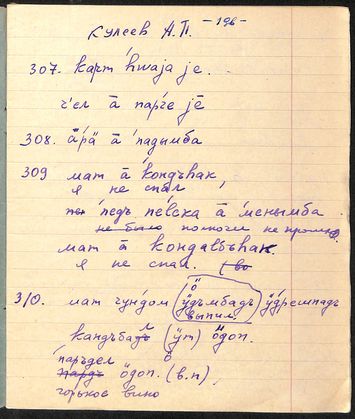 Кулеев А.П.
-196-
307. карт һwаја је.
чел ā парче јē
308. ӓ́рӓ ā ́падымба
309 мат ā ́кондъһак
я не спал,
́педъ пе́вска ā ́менымба
не было помочи не прошло.
мат ā кондаɛбъһак
я не спал.
310. мат чундом (ӱ́дъмбадъ ӱ́дремпадъ
выпил
кандъбадъ (ӱт) ӧдоп.
́паръдел ӧ
пардъ ӧдоп (в.п)
горькое вино